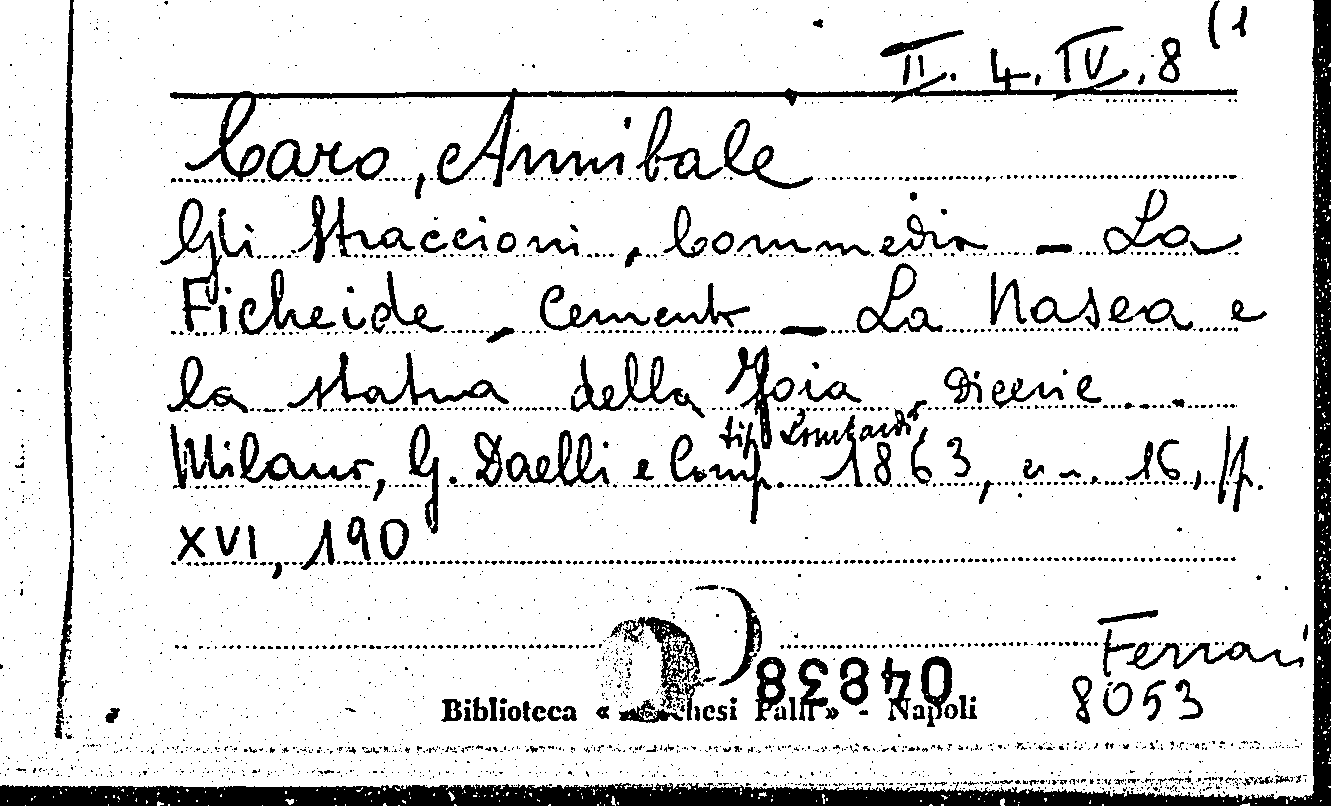 II. 4. IV. 8 (1
Caro, Annibale
Gli Straccioni, Commedia - La
Ficheide, Comento - La Nasea e
la statua della Foia, dicerie. -
Milano, G. Daelli e Comp. tip. Lombardi, 1863, cm. 16, pp.
XVI, 190
Ferrari
8053
04838
Biblioteca « Palli » - Napoli